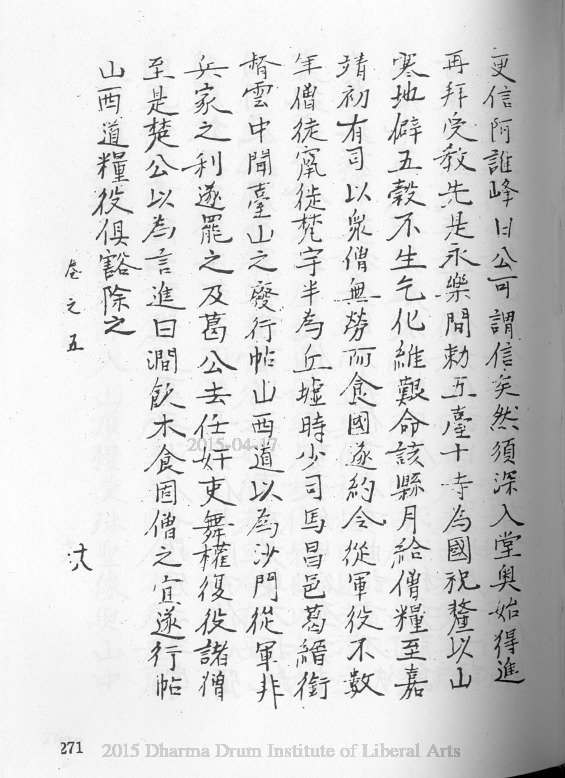 更信阿誰峰曰公可謂信矣然須深入堂奧始得進
再拜受教先是永樂間勅五臺十寺為國祝釐以山
寒地僻五穀不生乞化維艱命該縣月給僧糧至嘉
靖初有司以眾僧無勞阿食國遂約令從軍役不數
年僧徒竄徙梵宇半為丘墟時少司馬昌邑葛縉銜
督雲中聞臺山之廢行帖山西道以為沙門從軍非
兵家之利遂罷之及葛公去任奸吏舞權復役諸僧
至是楚公以為言進曰澗飲木食固僧之宜遂行帖
山西道糧役俱豁除之
卷之五
十八
271
2015-04-17
2015 Dharma Drum Institute of Liberal Arts